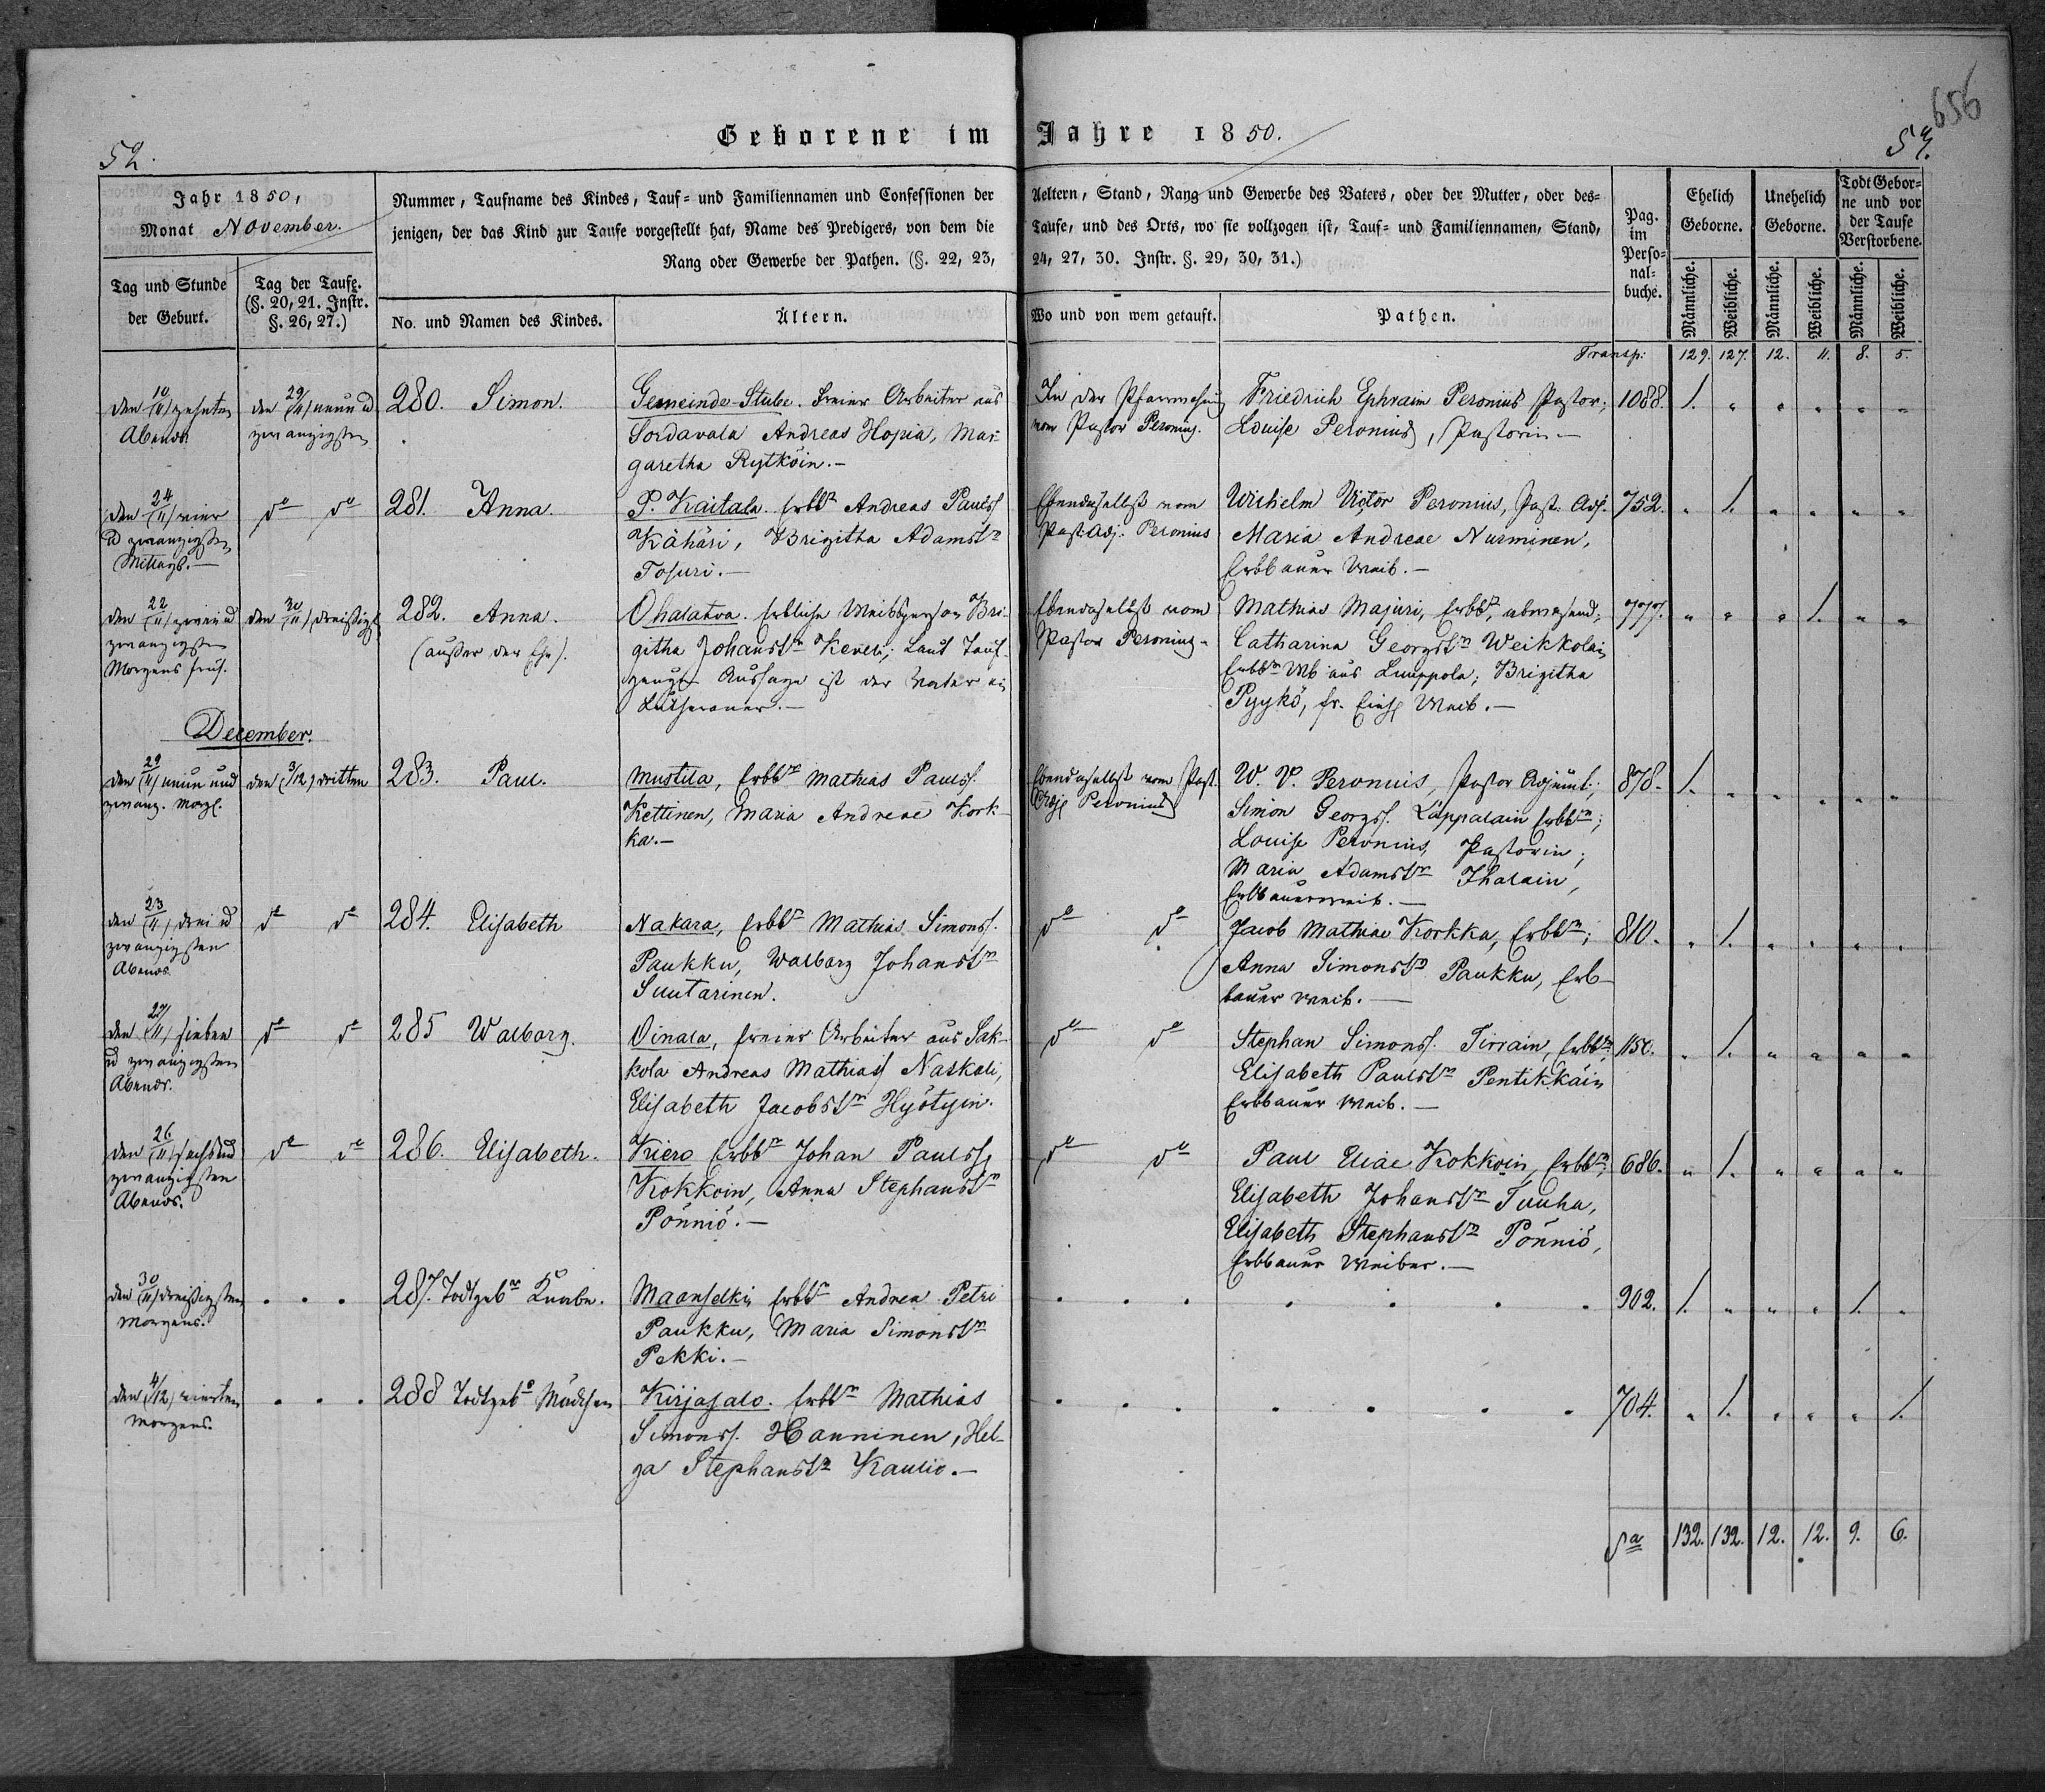 656
52.
Geborene im Jahre 1850.
52.
Jahr 1850,
Monat November.
Tag und Stunde
der Geburt.
Tag der Taufe.
(§. 20, 21. Instr.
§. 26, 27.)
Nummer, Taufname des Kindes, Tauf= und Familiennamen und Confessionen der Aeltern, Stand, Rang und Gewerbe des Vaters, oder der Mutter, oder des=
jenigen, der das Kind zur Taufe vorgestellt hat, Name des Predigers, von dem die Taufe, und des Orts, wo sie vollzogen ist, Tauf= und Familiennamen, Stand,
Rang oder Gewerbe der Pathen. (§. 22, 23, 24, 27, 30. Instr. §. 29, 30, 31.)
No. und Namen des Kindes.
Ältern.
Wo und von wem getauft.
Pathen.
Pag.
im
Perso=
nal=
buche.
Ehelich
Geborne.
Unehelich
Geborne.
Todt Gebor=
ne und vor
der Taufe
Verstorbene.
Männliche. Weibliche. Männliche. Weibliche. Männliche. Weibliche.
Transp: 129. 127. 12. 11. 8. 5.
den (10/11) zehnten
Abends
den (29/11) neun u
zwanzigsten
280. Simon.
Gemeinde-Stube. Freier Arbeiter aus
Sordavala Andreas Hopia, Mar-
garetha Rytköin.—
In der
vom Pastor Peronius.
Friedrich Ephraim Peronius Pastor;
Louise Peronius, Pastorin.—
1088. 1. " " " " "
den (24/11) vier
u zwanzigsten
Mittags.—
do do
281. Anna.
P. Kaitala. Erbbr Andreas Paulss
Kähäri, Brigitha Adamstr
Tosuri.—
Ebendaselbst vom
Past: Adj. Peronius
Wilhelm Victor Peronius, Past. Adj.
Maria Andreae Nurminen,
Erbbauer Weib.—
752. " 1. " " " "
den (22/11) zwei u
zwanzigsten
Morgens früh.
den (30/11) dreißigst
282. Anna.
(außer der Ehe).
Ohalatva. Erbliche Weibsperson Bri-
githa Johanstr Keveli; Laut Tauf-
zeugn Aussage ist der Vater ein
Lutheraner.—
Ebendaselbst vom
Pastor Peronius.
Mathias Majuri, Erbbr, abwesend;
Catharina Georgstr Weikkolain
Erbbrn Wb aus Lumppola; Brigitha
Pyykö, fr. Weib.—
777. " " " 1. " "
December.
den (29/11) neun und
zwanz. Morg.
den (3/12) dritten
283. Paul.
Mustila, Erbbr Mathias Paulss.
Kettinen, Maria Andreae Kork-
ka.—
Ebendaselbst vom Past.
Adj Peronius
W. V. Peronius, Pastor Adjunct;
Simon Georgss. Läppalain Erbbr;
Louise Peronius, Pastorin;
Maria Adamstr Ihalain,
Erbbauerweib.—
878. 1. " " " " "
den (23/11) drei u
zwanzigsten
Abends.
do do
284. Elisabeth
Nakara, Erbbr Mathias Simonss.
Paukku, Walborg Johanstr
Suutarinen.
do do
Jacob Mathiae Korkka, Erbbr;
Anna Simonstr Paukku, Erb-
bauer Weib.—
810. " 1. " " " "
den (27/11) sieben
u zwanzigsten
Abends.
do do
285 Walborg.
Oinala, freier Arbeiter aus Sak-
kola Andreas Mathiass Naskali,
Elisabeth Jacobstr Hyötyin.
do do
Stephan Simonss. Tirrain, Erbbr;
Elisabeth Paulstr Pentikkäin
Erbbauer Weib.—
1150. " 1. " " " "
den (26/11) sechs und
zwanzigsten
Abends.
do do
286. Elisabeth.
Kiero Erbbr Johan Paulss
Kokkoin, Anna Stephanstr
Pönniö.—
do do
Paul Eliae Kokkoin, Erbbr;
Elisabeth Johanstr Tuuha,
Elisabeth Stephanstr Pönniö,
Erbbauer Weiber.—
686. " 1. " " " "
den (30/11) dreißigsten
Morgens.
. . .
287. Todtgebr Knabe.
Maanselkä Erbbr Andrea Petri
Paukku, Maria Simonstr
Pekki.—
902. 1. " " " 1. "
den (4/12) vierten
Morgens.
. . .
288 Todtgebs Mädchen
Kirjasalo. Erbbr Mathias
Simonss. Hanninen, Hel-
ga Stephanstr Kaulio.—
704. " 1. " " " 1.
Sa 132. 132. 12. 12. 9. 6.